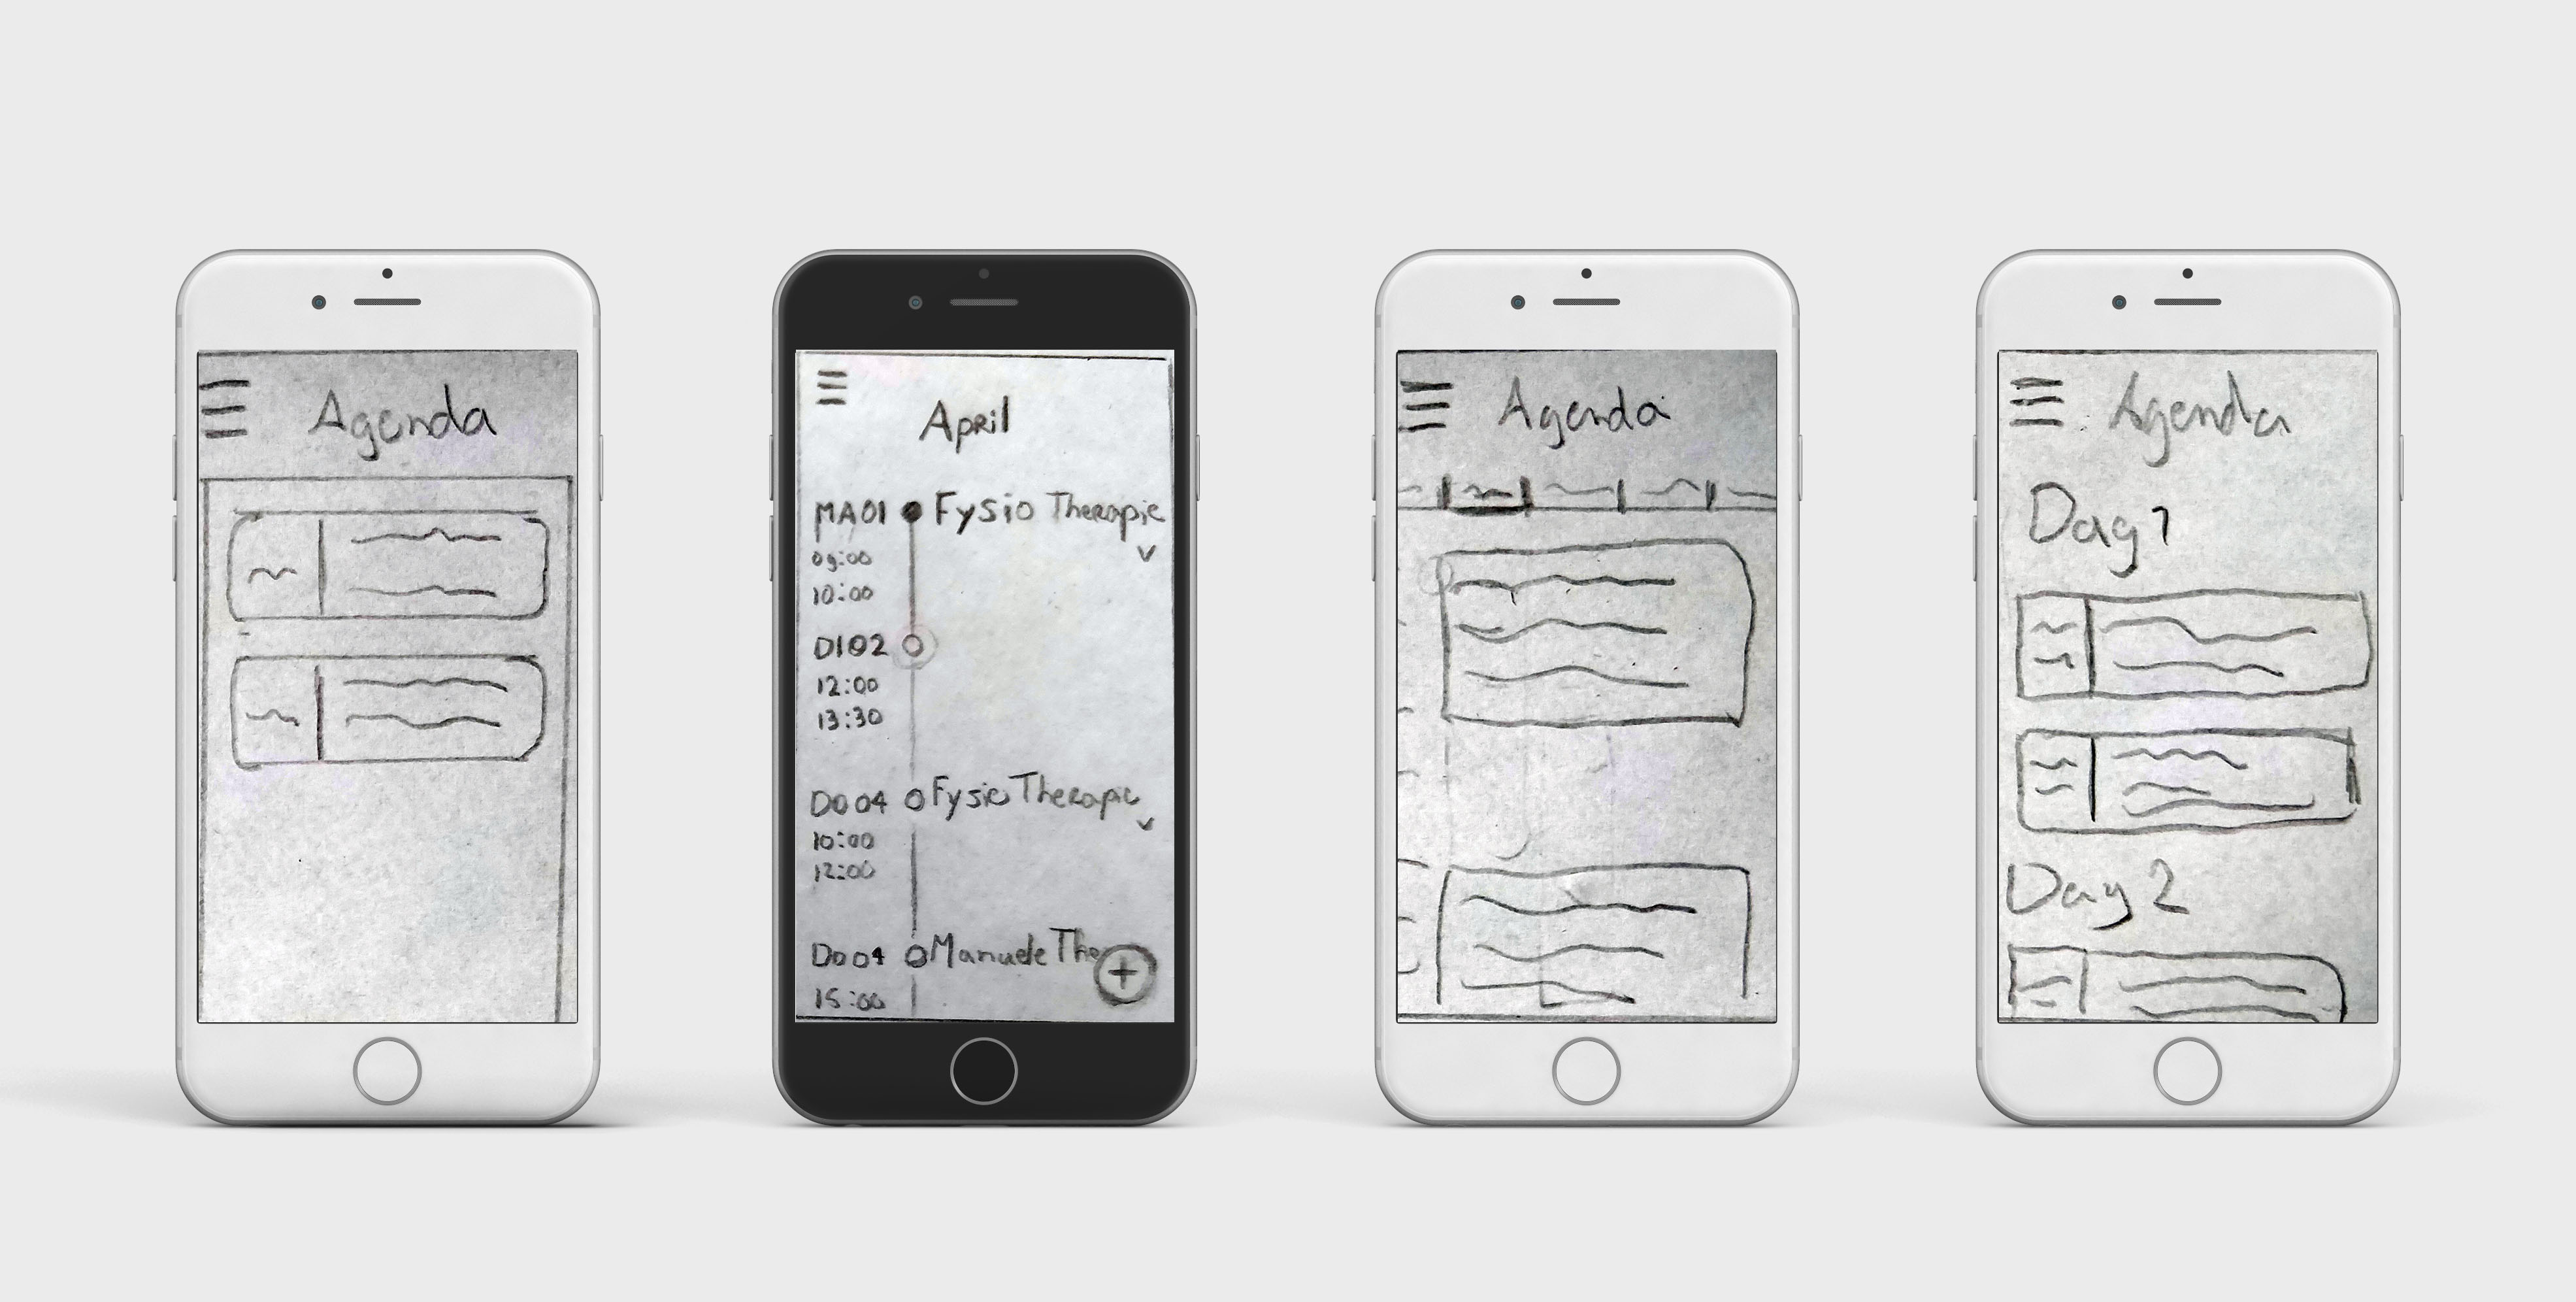 Agenda
April
MA01 Fysio Therapie
09:00
10:00
DI02
12:00
13:30
DO04 Fysio Therapie
10:00
12:00
DO04 Manuele The
15:00
Agenda
Agenda
Dag 1
Day 2